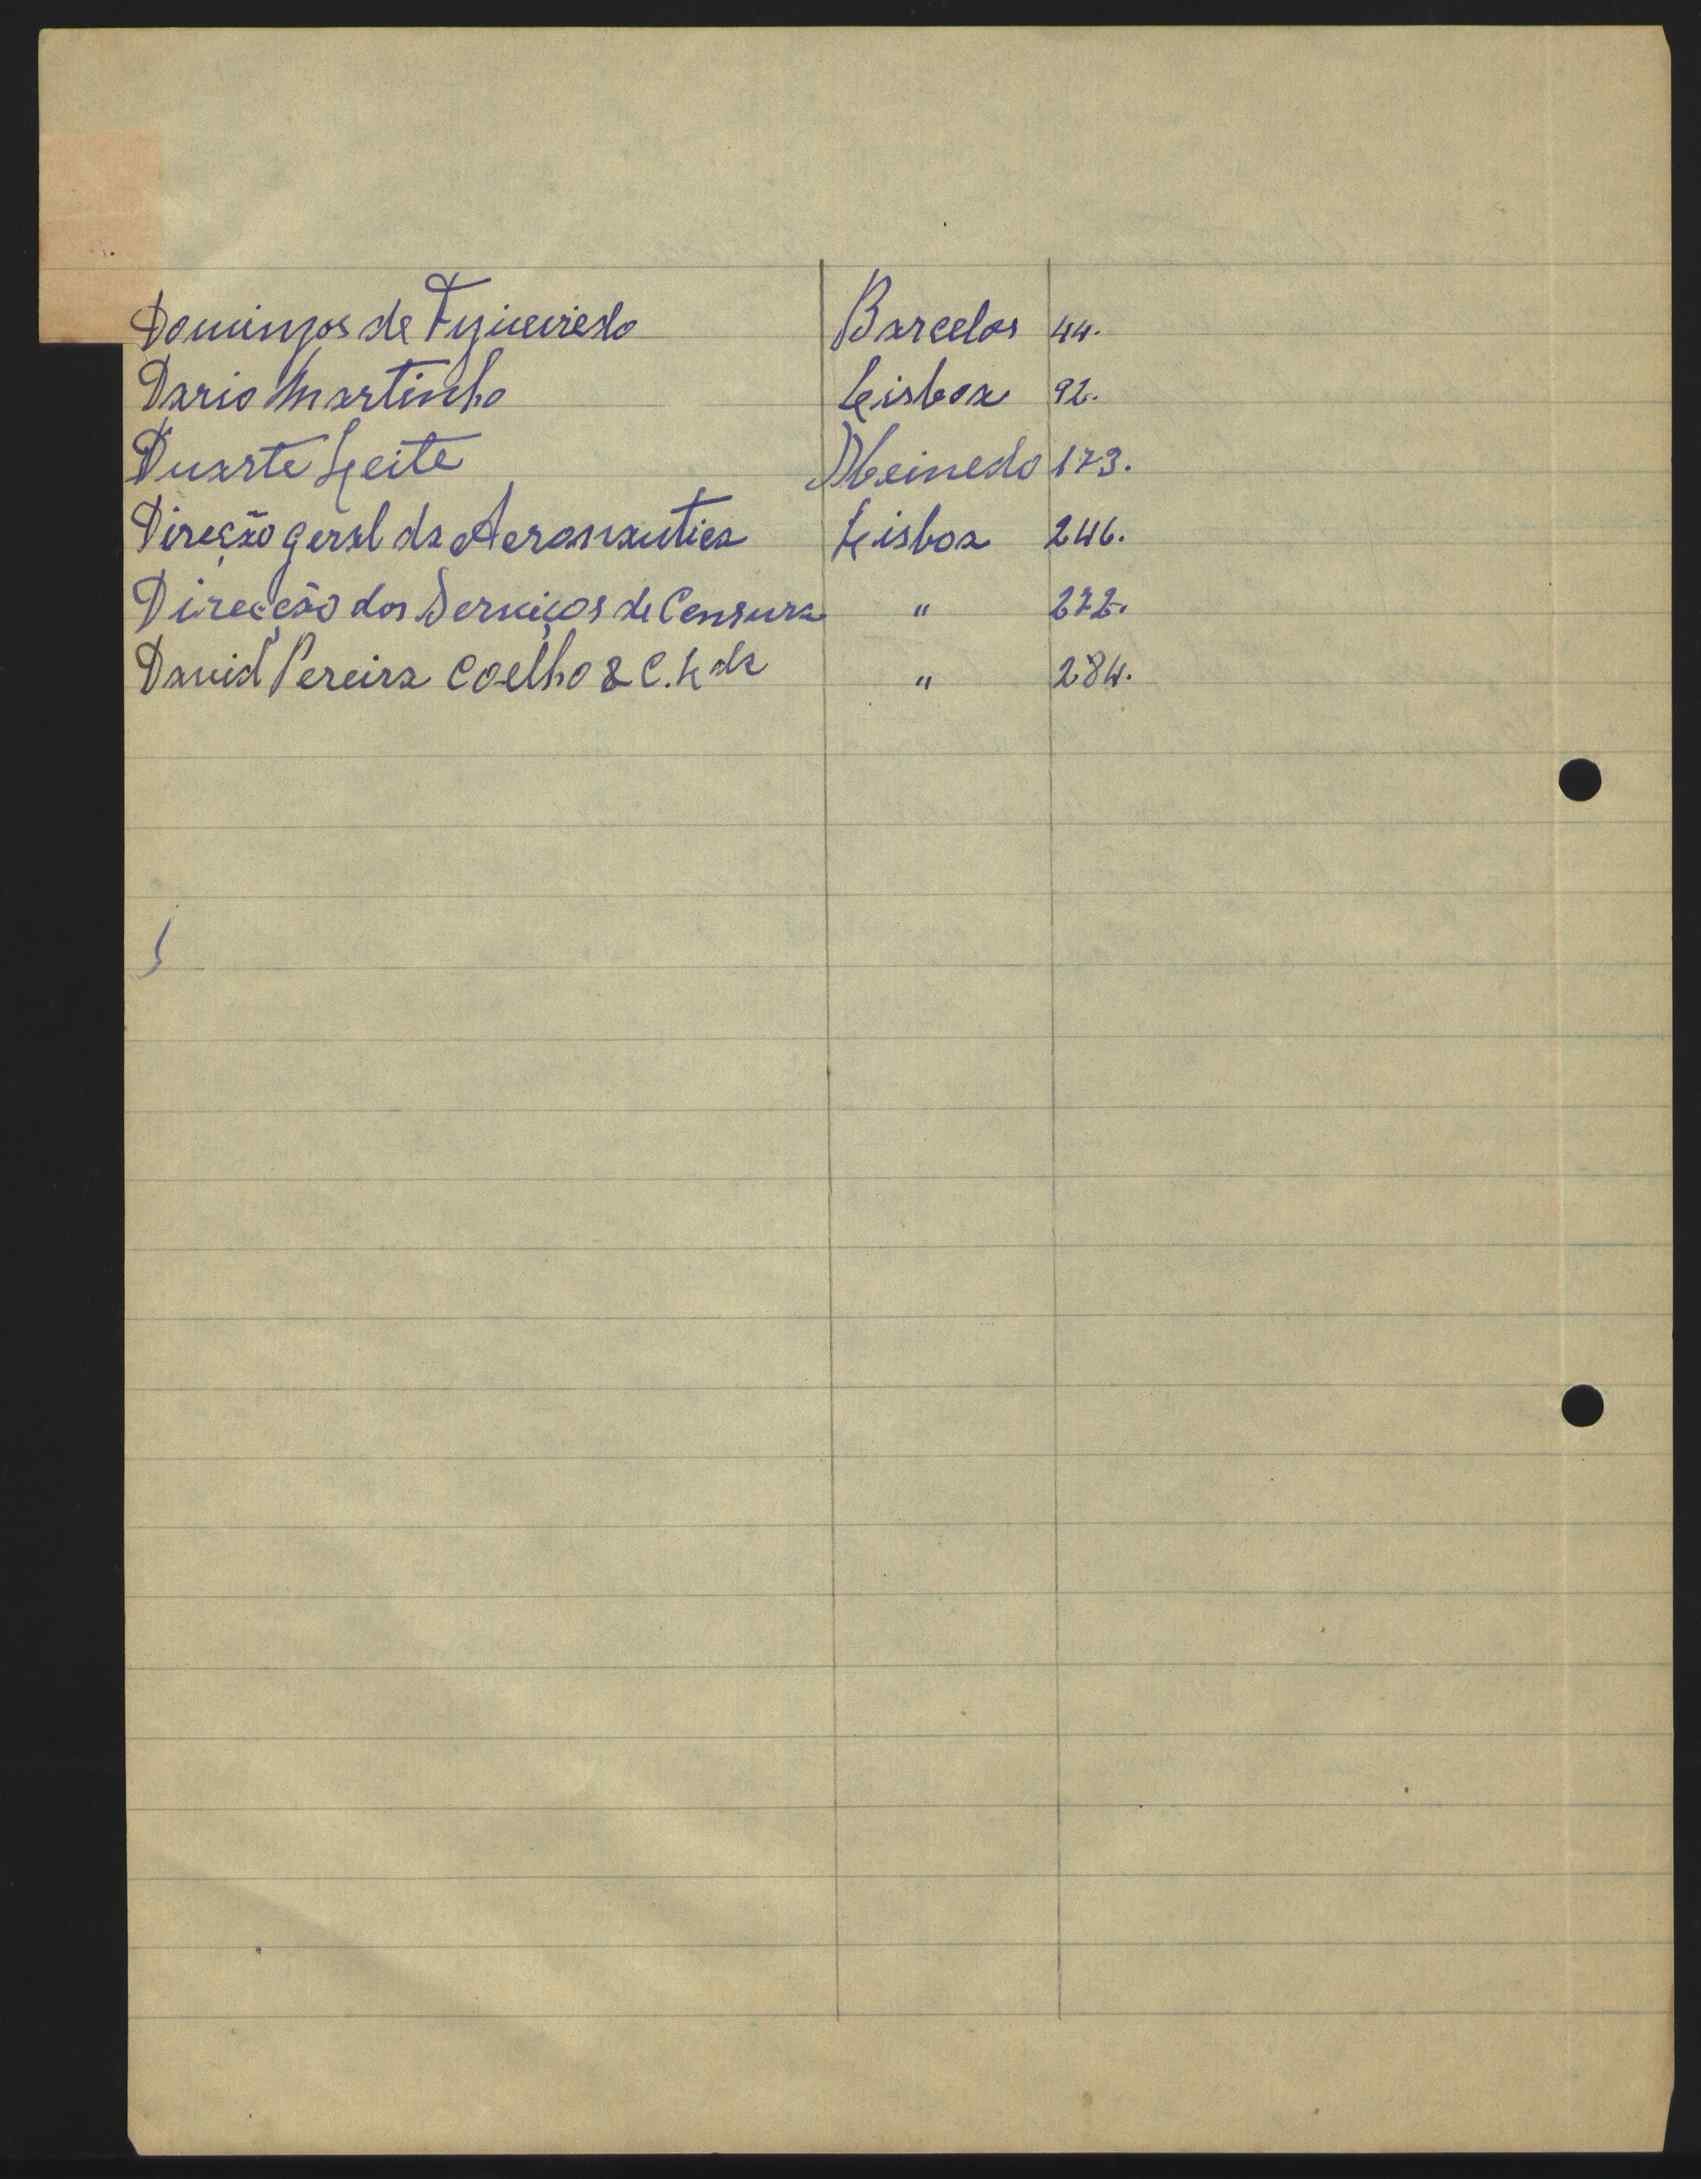 Domingos de Figueiredo Barcelos 44.
Dario Martinho Lisboa 92.
Duarte Leite Meinedo 173.
Direcção geral da Aeronautica Lisboa 246.
Direcção dos Serviços de Censura " 272.
David Pereira Coelho & C. Lda " 284.